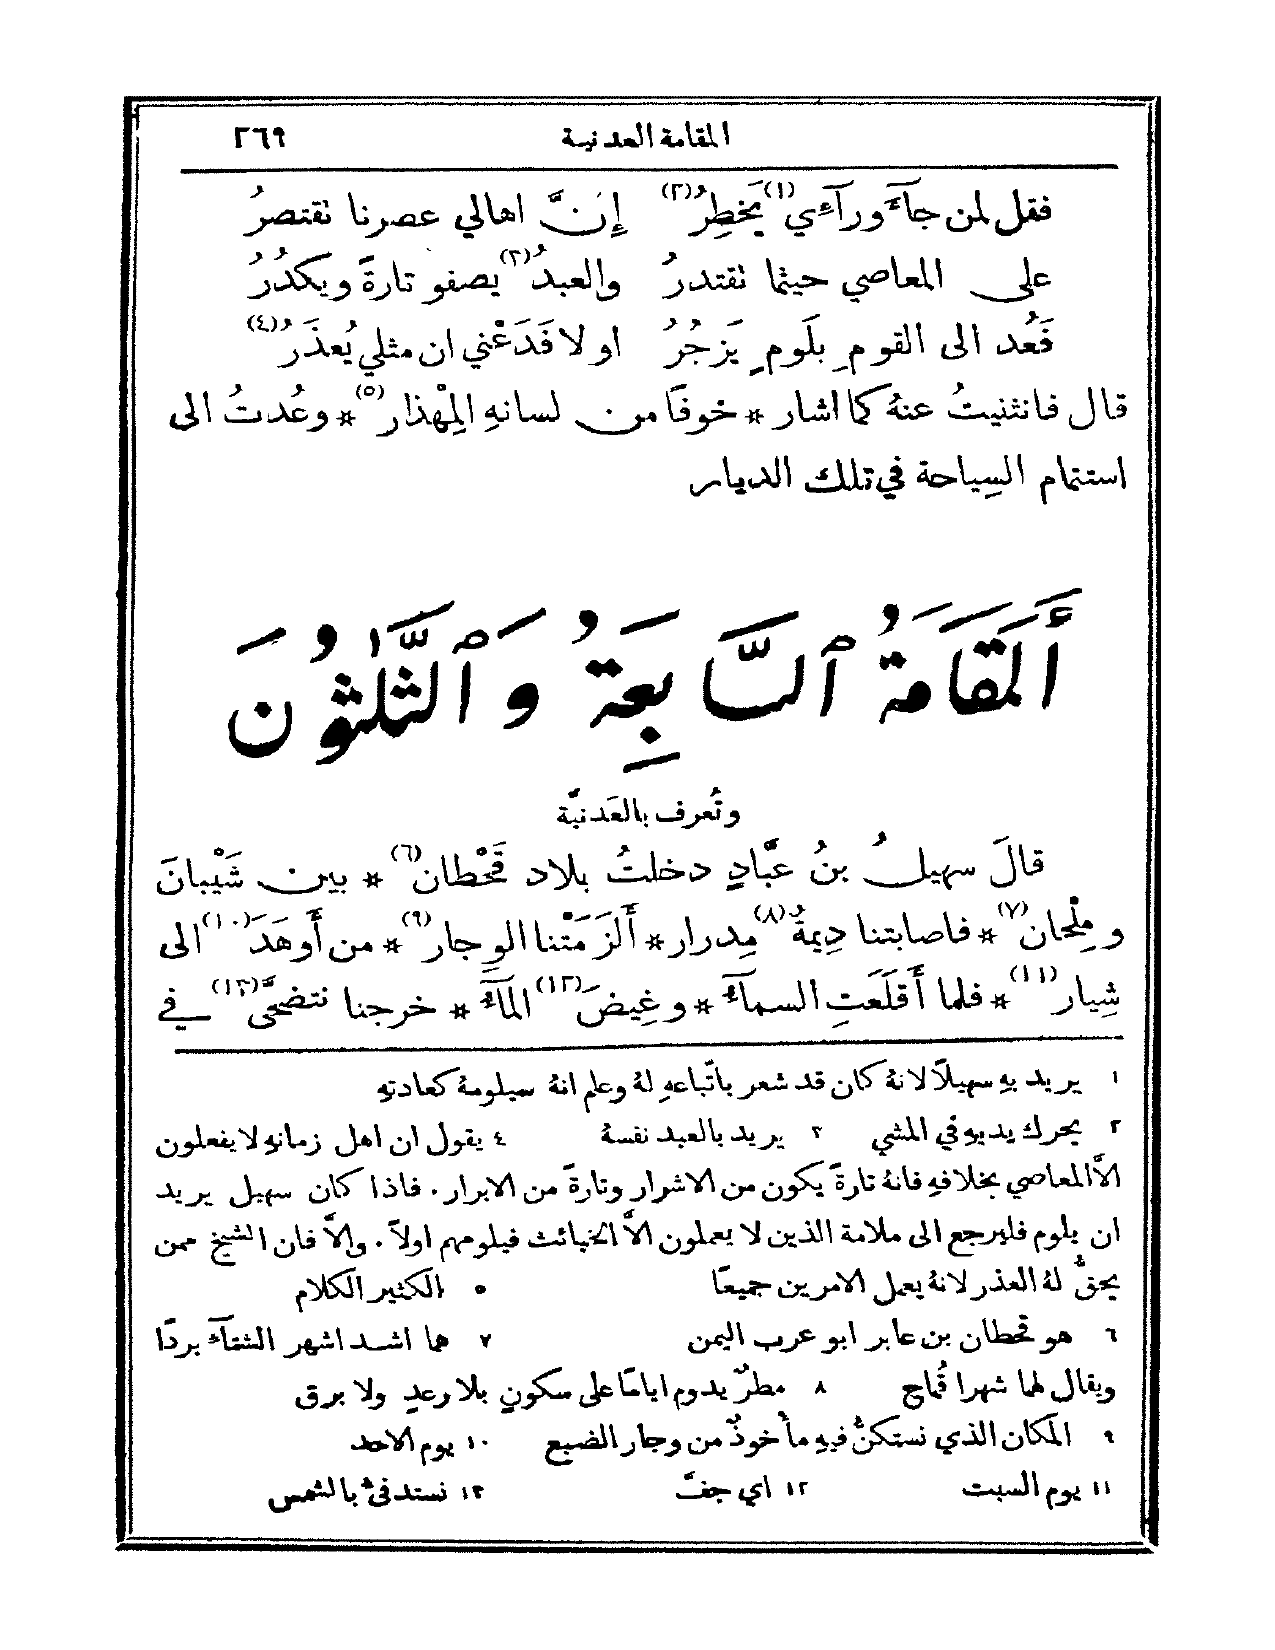 المقامة العدنية ٢٦٩
فقل لمن جآءَ ورآءِي(١) يَخطِرُ(٢) إِنَّ اهالي عصرنا نقتصرُ
على المعاصي حيثما نقتدرُ والعبدُ(٣) يصفو تارةً ويكدُرُ
فَعُد الى القومِ بلَومٍ يَزجُرُ او لا فَدَعْني ان مثلي يُعذَرُ(٤)
قال فانثنيتُ عنهُ كما اشار * خوفًا من لسانهِ المِهْذار(٥) * وعُدتُ الى
استتمام السِياحة في تلك الديار
أَلمَقَامَةُ ٱلسَّابِعَةُ وَٱلثَّلٰثُونَ
وتُعرف بالعَدنيَّة
قالَ سهيلُ بنُ عبَّادٍ دخلتُ بلاد قَحْطان(٦) * بين شَيْبانَ
ومِلْحان(٧) * فاصابتنا دِيمةٌ(٨) مِدرار * أَلزَمَتْنا الوِجار(٩) * من أَوهَدَ(١٠) الى
شِيار(١١) * فلما أَقلَعَتِ السمآءُ * وغِيضَ(١٢) المآءُ * خرجنا نتضحَّى(١٣) في
١ يريد بهِ سهيلًا لانهُ كان قد شعر باتّباعهِ لهُ وعلم انهُ سيلومهُ كعادتهِ
٢ يحرك يديهِ في المشي ٣ يريد بالعبد نفسهُ ٤ يقول ان اهل زمانهِ لا يفعلون
الَّا المعاصي بخلافهِ فانهُ تارةً يكون من الاشرار وتارةً من الابرار. فاذا كان سهيل يريد
ان يلوم فليرجع الى ملامة الذين لا يعملون الَّا الخبائث فيلومهم اولًا. والَّا فان الشيخ ممن
يحقُّ لهُ العذر لانهُ يعمل الامرين جميعًا ٥ الكثير الكلام
٦ هو قحطان بن عابر ابو عرب اليمن ٧ هما اشد اشهر الشتآء بردًا
ويقال لهما شهرا قُماح ٨ مطرٌ يدوم ايامًا على سكونٍ بلا رعدٍ ولا برق
٩ المكان الذي نستكنُّ فيهِ مأخوذٌ من وجار الضبع ١٠ يوم الاحد
١١ يوم السبت ١٢ اي جفَّ ١٣ نستدفئُ بالشمس